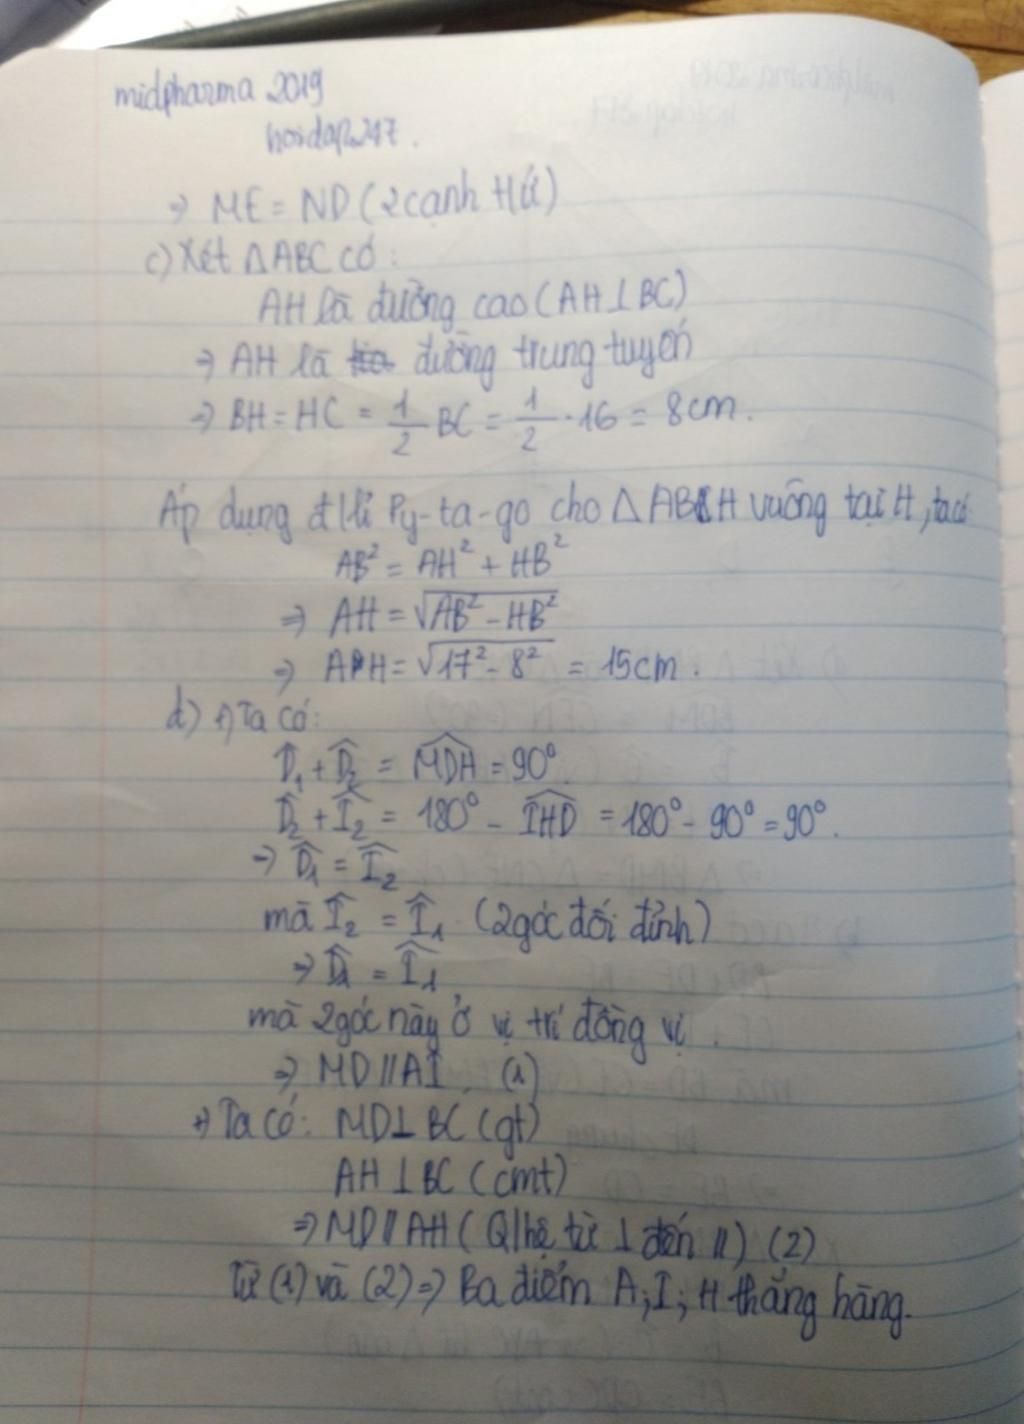 midpharma 2019
hoidap247.
=> ME = ND (2 cạnh tứ)
c) Xét △ABC có:
AH là đường cao (AH ⊥ BC)
=> AH là đường trung tuyến
=> BH = HC = 1/2 BC = 1/2 · 16 = 8cm.
Áp dụng đ/lí Py-ta-go cho △ABH vuông tại H, ta có
AB² = AH² + HB²
=> AH = √(AB² - HB²)
=> AH = √(17² - 8²) = 15cm.
d) +) Ta có:
D̂₁ + D̂₂ = M̂DH = 90°.
D̂₂ + Î₂ = 180° - ÎHD = 180° - 90° = 90°.
=> D̂₁ = Î₂
mà Î₂ = Î₁ (2 góc đối đỉnh)
=> D̂₁ = Î₁
mà 2 góc này ở vị trí đồng vị.
=> MD // AI (1)
+) Ta có: MD ⊥ BC (gt)
AH ⊥ BC (cmt)
=> MD // AH (Q/hệ từ ⊥ đến //) (2)
Từ (1) và (2) => Ba điểm A; I; H thẳng hàng.